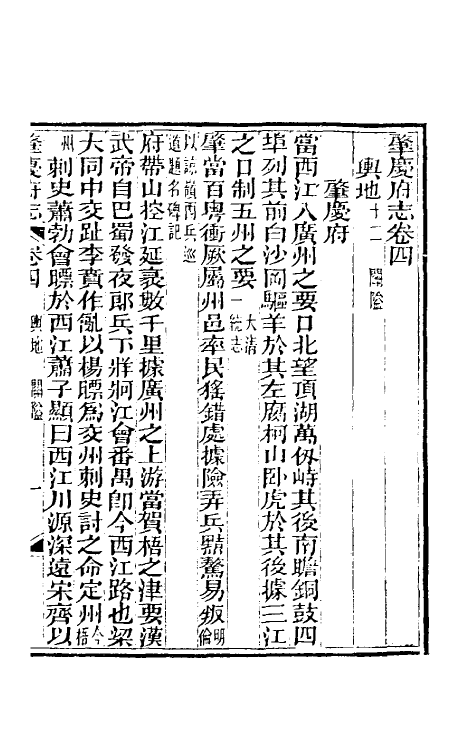 肇慶府志卷四
輿地十二 關隘
肇慶府
當西江入廣州之要口北望頂湖萬仭峙其後南瞻銅鼓四
埠列其前白沙岡驅羊於其左腐柯山卧虎於其後據三江
之口制五州之要大清一統志
肇當百粤衝厥屬州邑率民猺錯處據險弄兵黠驁易叛明倫
以諒嶺西兵巡道題名碑記
府帶山控江延袤數千里據廣州之上游當賀梧之津要漢
武帝自巴蜀發夜郞兵下牂牁江會番禺卽今西江路也梁
大同中交趾李賁作亂以楊㬓爲交州刺史討之命定州今梧
州刺史蕭勃會㬓於西江蕭子顯曰西江川源深遠宋齊以
肇慶府志 卷四 輿地 關隘 一